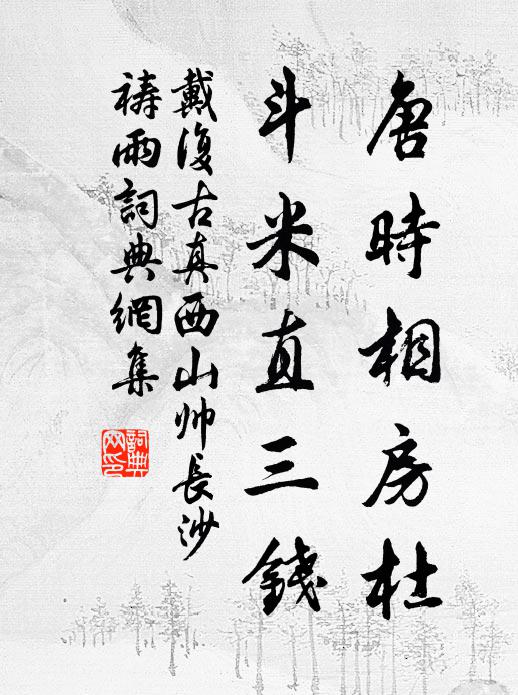 唐時相房杜
斗米直三錢
戴復古真西山帅長沙
禱雨詞典網集
詞典網印